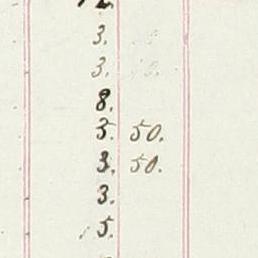 3.
3.
8.
3. 50.
3. 50.
3.
5.